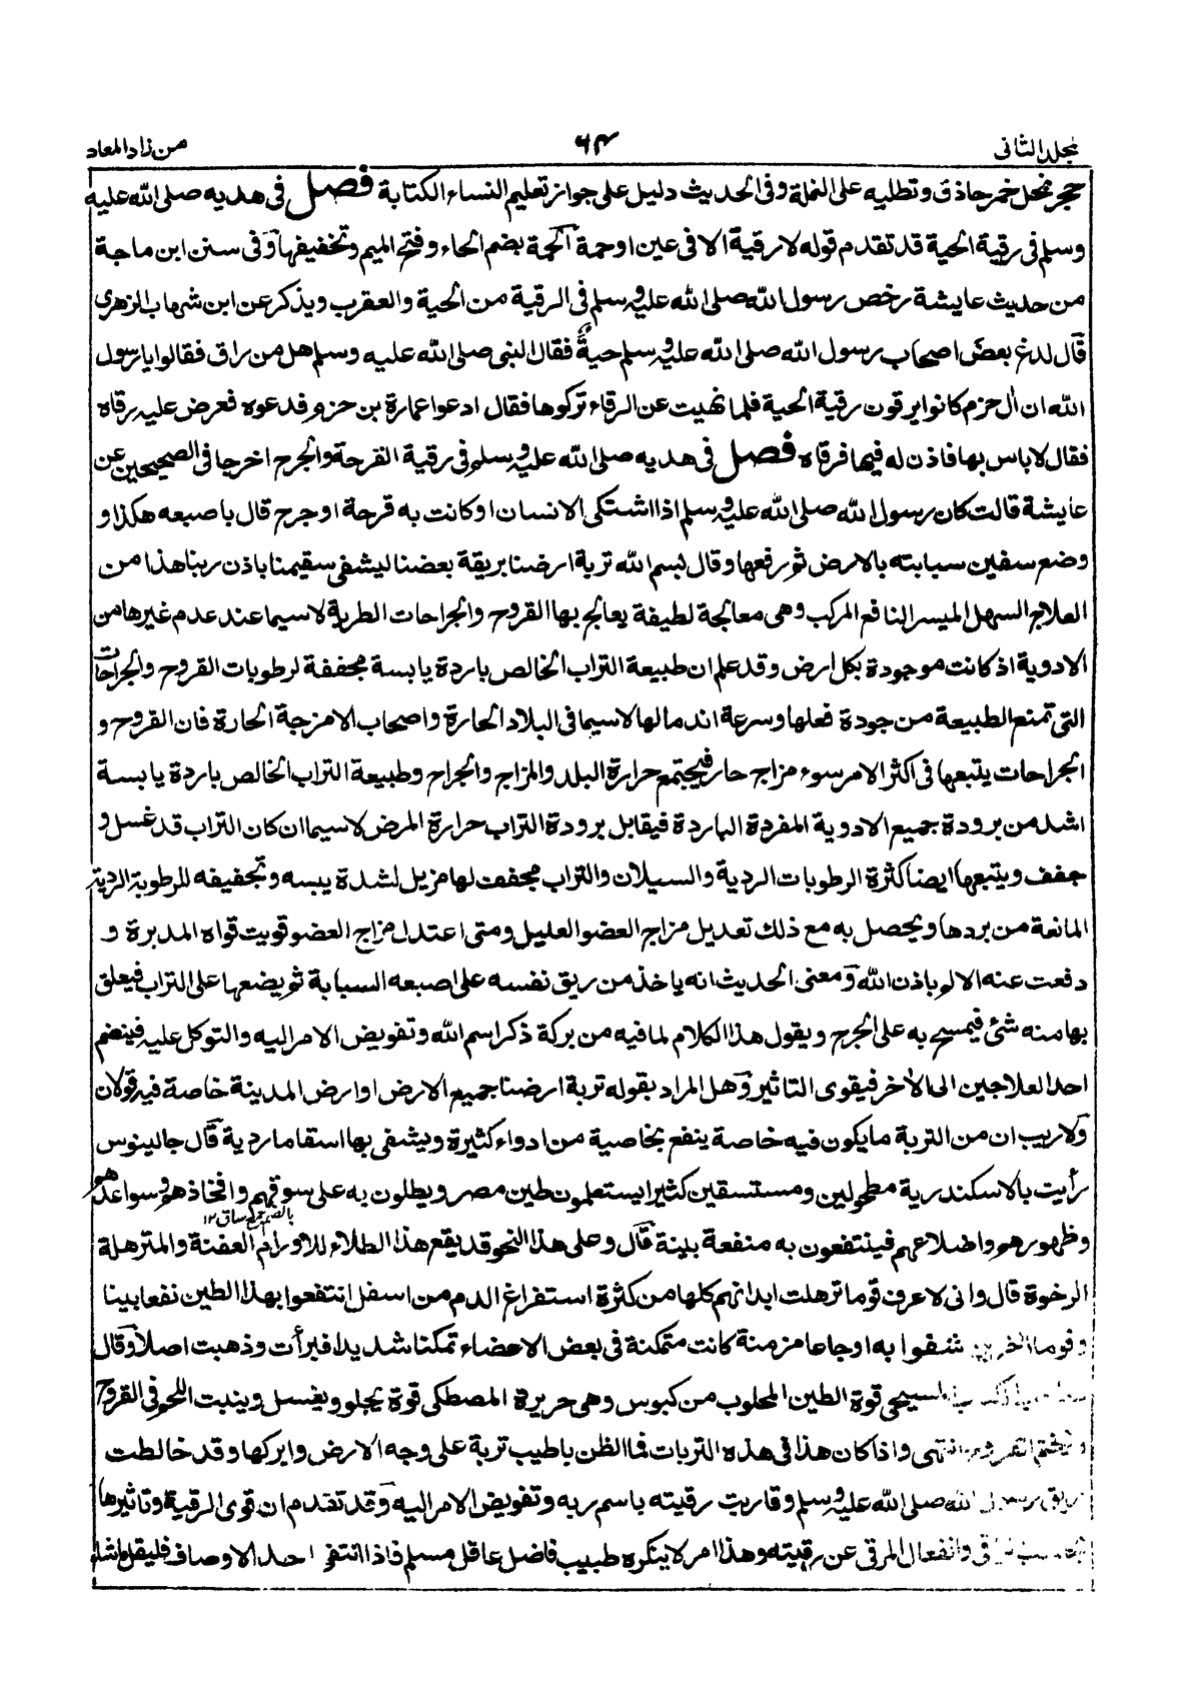 مجلد الثانى
٦٣
من زاد المعاد
حجر بخل خمر حاذق وتطليه على النملة وفى الحديث دليل على جواز تعليم النساء الكتابة فصل فى هديه صلى الله عليه
وسلم فى رقية الحية قد تقدم قوله لا رقية الا فى عين او حمة الحمة بضم الحاء وفتح الميم وتخفيفها وفى سنن ابن ماجة
من حديث عايشة رخص رسول الله صلى الله عليه وسلم فى الرقية من الحية والعقرب ويذكر عن ابن شهاب الزهرى
قال لدغ بعض اصحاب رسول الله صلى الله عليه وسلم حية فقال النبى صلى الله عليه وسلم هل من راق فقالوا يا رسول
الله ان ال حزم كانوا يرقون رقية الحية فلما نهيت عن الرقاء تركوها فقال ادعوا عمارة بن حزم فدعوه فعرض عليه رقاه
فقال لا باس بها فاذن له فيها فرقاه فصل فى هديه صلى الله عليه وسلم فى رقية القرحة والجرح اخرجا فى الصحيحين عن
عايشة قالت كان رسول الله صلى الله عليه وسلم اذا اشتكى الانسان او كانت به قرحة او جرح قال باصبعه هكذا و
وضع سفين سبابته بالارض ثم رفعها وقال بسم الله تربة ارضنا بريقة بعضنا ليشفى سقيمنا باذن ربنا هذا من
العلاج السهل الميسر النافع المركب وهى معالجة لطيفة يعالج بها القروح والجراحات الطرية لا سيما عند عدم غيرها من
الادوية اذ كانت موجودة بكل ارض وقد علم ان طبيعة التراب الخالص باردة يابسة مجففة لرطوبات القروح والجراحات
التى تمنع الطبيعة من جودة فعلها وسرعة اندمالها لا سيما فى البلاد الحارة واصحاب الامزجة الحارة فان القروح و
الجراحات يتبعها فى اكثر الامر سوء مزاج حار فيجتمع حرارة البلد والمزاج والجراح وطبيعة التراب الخالص باردة يابسة
اشد من برودة جميع الادوية المفردة الباردة فيقابل برودة التراب حرارة المرض لا سيما ان كان التراب قد غسل و
جفف ويتبعها ايضا كثرة الرطوبات الردية والسيلان والتراب مجفف لها مزيل لشدة يبسه وتجفيفه للرطوبة الردية
المانعة من بردها ويحصل به مع ذلك تعديل مزاج العضو العليل ومتى اعتدل مزاج العضو قويت قواه المدبرة و
دفعت عنه الالم باذن الله ومعنى الحديث انه ياخذ من ريق نفسه على اصبعه السبابة ثم يضعها على التراب فيعلق
بها منه شئ فيمسح به على الجرح ويقول هذا الكلام لما فيه من بركة ذكر اسم الله وتفويض الامر اليه والتوكل عليه فينضم
احد العلاجين الى الاخر فيقوى التاثير وهل المراد بقوله تربة ارضنا جميع الارض او ارض المدينة خاصة فيه قولان
ولا ريب ان من التربة ما يكون فيه خاصة ينفع بخاصية من ادواء كثيرة ويشفى بها اسقاما ردية قال جالينوس
رأيت بالاسكندرية مطحولين ومستسقين كثيرا يستعلمون طين مصر ويطلون به على سوقهم وافخاذهم وسواعدهم
بالضم جمع ساق ١٢
وظهورهم واضلاعهم فينتفعون به منفعة بينة قال وعلى هذا النحو قد يقع هذا الطلاء للاورام العفنة والمترهلة
الرخوة قال وانى لاعرف قوما ترهلت ابدانهم كلها من كثرة استفراغ الدم من اسفل انتفعوا بهذا الطين نفعا بينا
وقوما اخرين شفوا به اوجاعا مزمنة كانت متمكنة فى بعض الاعضاء تمكنا شديدا فبرأت وذهبت اصلا وقال
المسيحى قوة الطين المجلوب من كبوس وهى جزيرة المصطكى قوة يجلو ويغسل وينبت اللحم فى القروح
ويختم القروح انتهى واذا كان هذا فى هذه التربات فما الظن باطيب تربة على وجه الارض وابركها وقد خالطت
ريق رسول الله صلى الله عليه وسلم وقاربت رقيته باسم ربه وتفويض الامر اليه وقد تقدم ان قوى الرقية وتاثيرها
بحسب الراقى وانفعال المرقى عن رقيته وهذا امر لا ينكره طبيب فاضل عاقل مسلم فاذا انتفى احد الاوصاف فليقل ما شاء